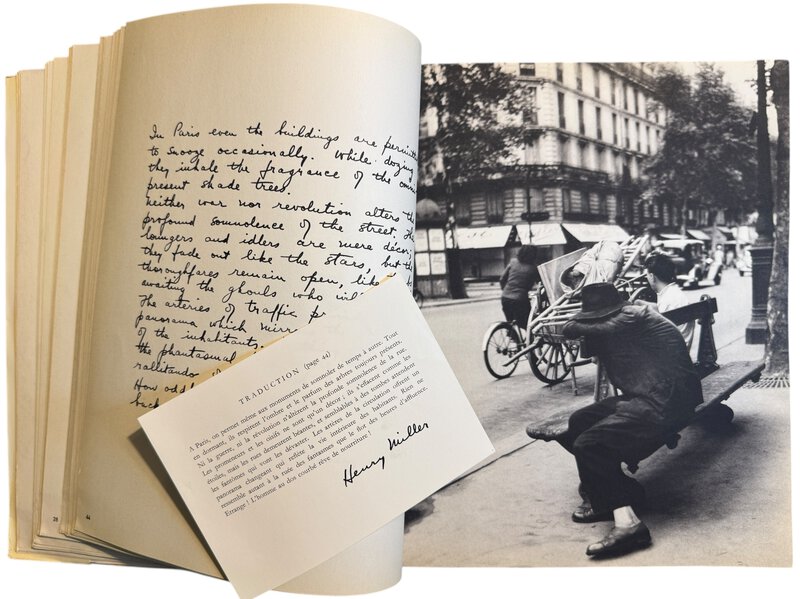 In Paris even the buildings are
to snooze occasionally. While dozing
they inhale the fragrance of the
present shade trees.
Neither war nor revolution alters the
profound somnolence of the street. The
loungers and idlers are mere décor;
they fade out like the stars, but the
thoroughfares remain open, like
awaiting the ghouls who will
The arteries of traffic
panorama which
of the inhabitants.
the phantasmal
rallitando
How odd
back
28
44
TRADUCTION (page 44)
A Paris, on permet même aux monuments de somnoler de temps à autre. Tout
en dormant, ils respirent l'ombre et le parfum des arbres toujours présents.
Ni la guerre, ni la révolution n'altèrent la profonde somnolence de la rue.
Les promeneurs et les oisifs ne sont qu'un décor; ils s'effacent comme les
étoiles, mais les rues demeurent béantes, et semblables à des tombes attendent
les fantômes qui vont les dévaster. Les artères de la circulation offrent un
panorama changeant qui reflète la vie intérieure des habitants. Rien ne
ressemble autant à la ruée des fantasmes que le flot des heures d'affluence.
Etrange! L'homme au dos courbé rêve de nourriture!
Henry Miller